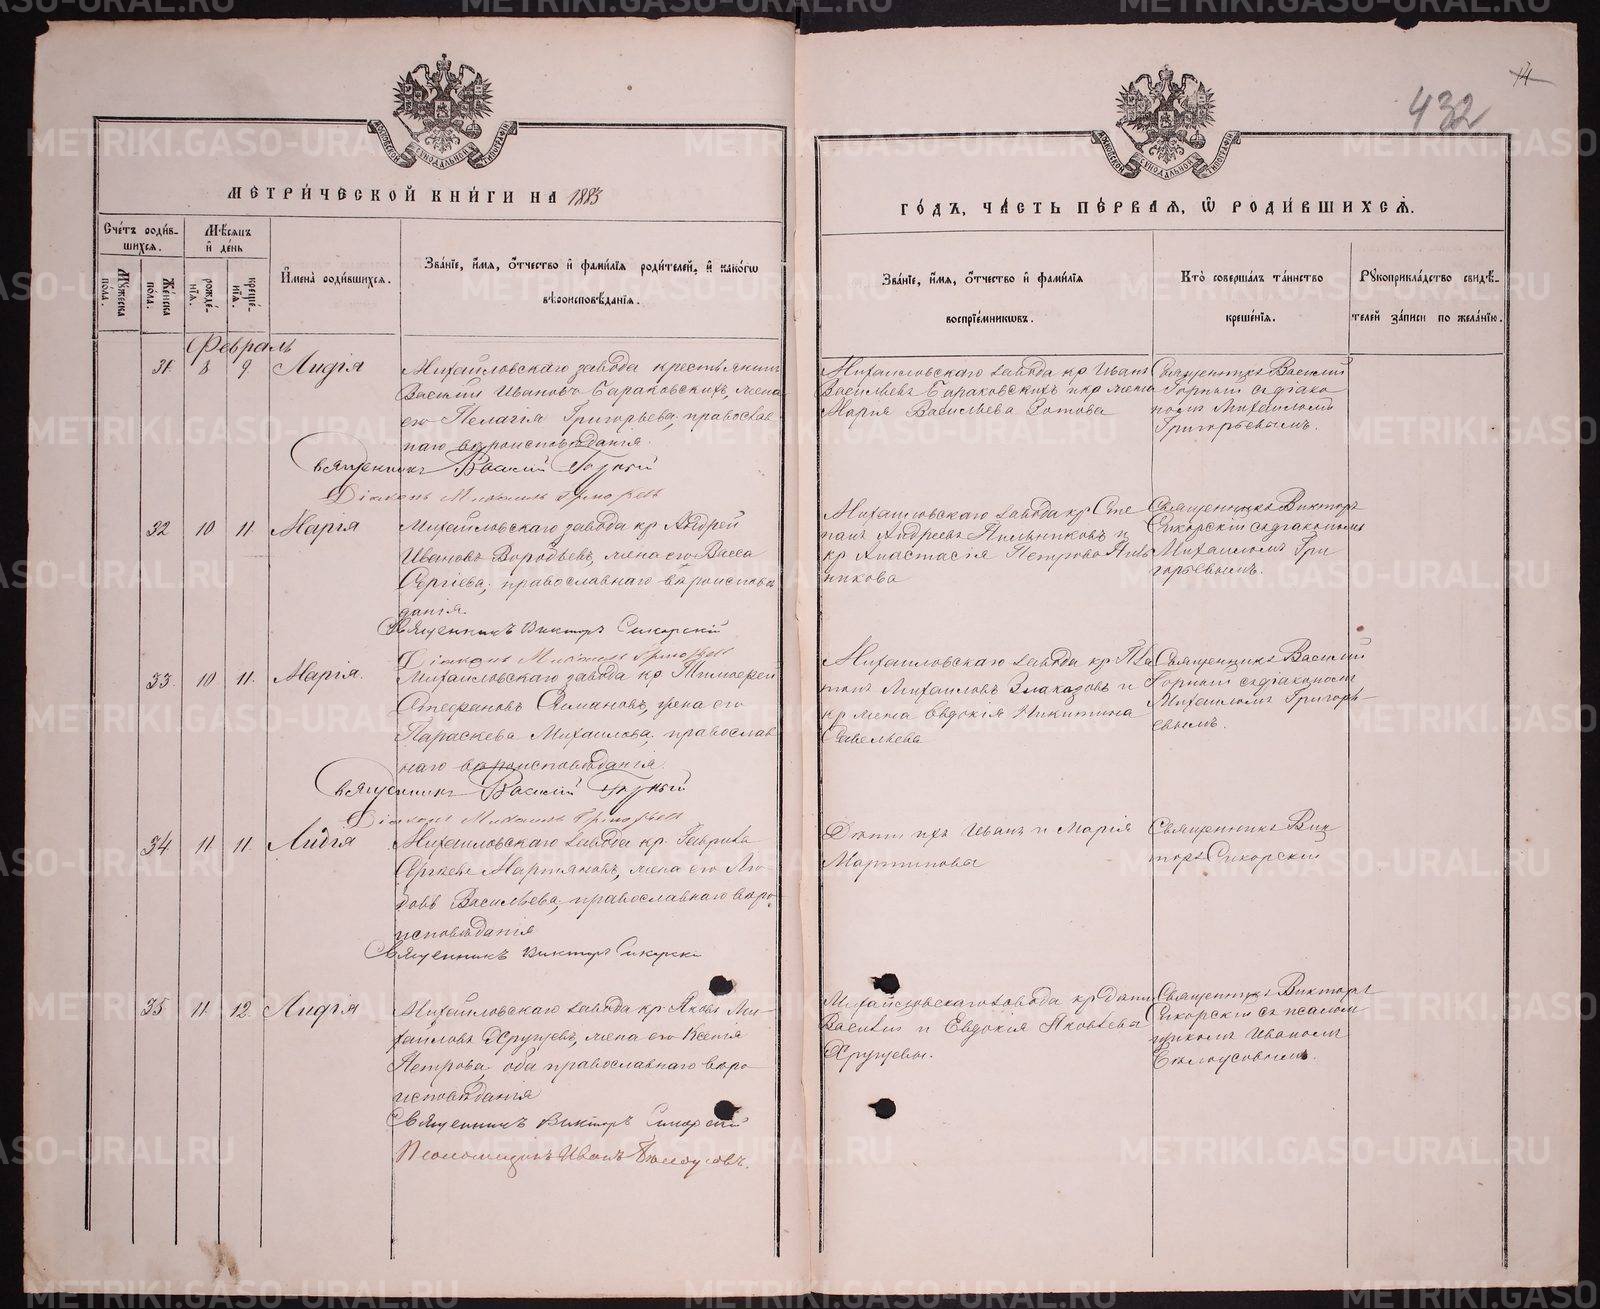 14
432
МЕТРИ́ЧЕСКОЙ КНИ́ГИ НА 1883
ГО́ДЪ, ЧА́СТЬ ПЕ́РВАЯ, Ѡ РОДИ́ВШИХСЯ.
Сче́тъ роди́вшихся.
Мѣсяцъ и де́нь
Имена̀ роди́вшихся.
Зва́нїе, и́мя, о́тчество и фами́лїя роди́телей, и како́гѡ
вѣроисповѣ́данїя.
Зва́нїе, и́мя, о́тчество и фами́лїя
воспрїе́мникѡвъ.
Кто̀ соверша́лъ та́инство
креще́нїя.
Рꙋкоприкла́дство свидѣ́-
телей за́писи по жела́нїю.
Мꙋжеска по́ла.
Же́нска по́ла.
рожде́нїя.
креще́нїя.
Февраль
31 8 9 Лидія
Михайловскаго завода крестьянинъ
Василий Ивановъ Бараковскихъ, жена
его Пелагія Григорьева, православ
наго вѣроисповѣданія.
Священникъ Василий Горный
Діаконъ Михаилъ Григорьевъ
Михайловскаго завода кр Иванъ
Васильевъ Бараковскихъ и кр жена
Мария Васильева Зотова
Священникъ Василий
Горный съ діако
номъ Михаиломъ
Григорьевымъ.
32 10 11 Марія
Михайловскаго завода кр Андрей
Ивановъ Воробьевъ, жена его Васса
Сергіева, православнаго вѣроисповѣ
данія.
Священникъ Викторъ Сикорскій
Діаконъ Михаилъ Григорьевъ
Михайловскаго завода кр Сте
панъ Андреевъ Пильниковъ и
кр Анастасія Петрова Пиль
никова
Священникъ Викторъ
Сикорскій съ діакономъ
Михаиломъ Гри
горьевымъ.
33. 10 11. Марія.
Михайловскаго завода кр Тимофей
Стефановъ, жена его
Параскева Михаилова, православ
наго вѣроисповѣданія.
Священникъ Василий Горный
Діаконъ Михаилъ Григорьевъ
Михайловскаго завода кр Пла
тонъ Михаиловъ Злаказовъ и
кр жена Евдокія Никитина
Савельева
Священникъ Василий
Горный съ діакономъ
Михаиломъ Григорь
евымъ.
34 11 11 Лидія
Михайловскаго завода кр. Гаврила
Сергѣевъ Мартяновъ, жена его Лю-
бовь Васильева, православнаго вѣро-
исповѣданія
Священникъ Викторъ Сикорскій
Дѣти ихъ Иванъ и Марія
Мартяновы
Священникъ Вик
торъ Сикорскій
35 11 12 Лидія
Михайловскаго завода кр Яковъ Ми-
хайловъ Хрущевъ, жена его Ксенія
Петрова, оба православнаго вѣро
исповѣданія
Священникъ Викторъ Сикорскій
Псаломщикъ Иванъ Бѣлоусовъ.
Михайловскаго завода кр дѣти
Василий и Евдокія Яковлева
Хрущевы.
Священникъ Викторъ
Сикорскій съ псалом
щикомъ Иваномъ
Бѣлоусовымъ.
METRIKI.GASO-URAL.RU